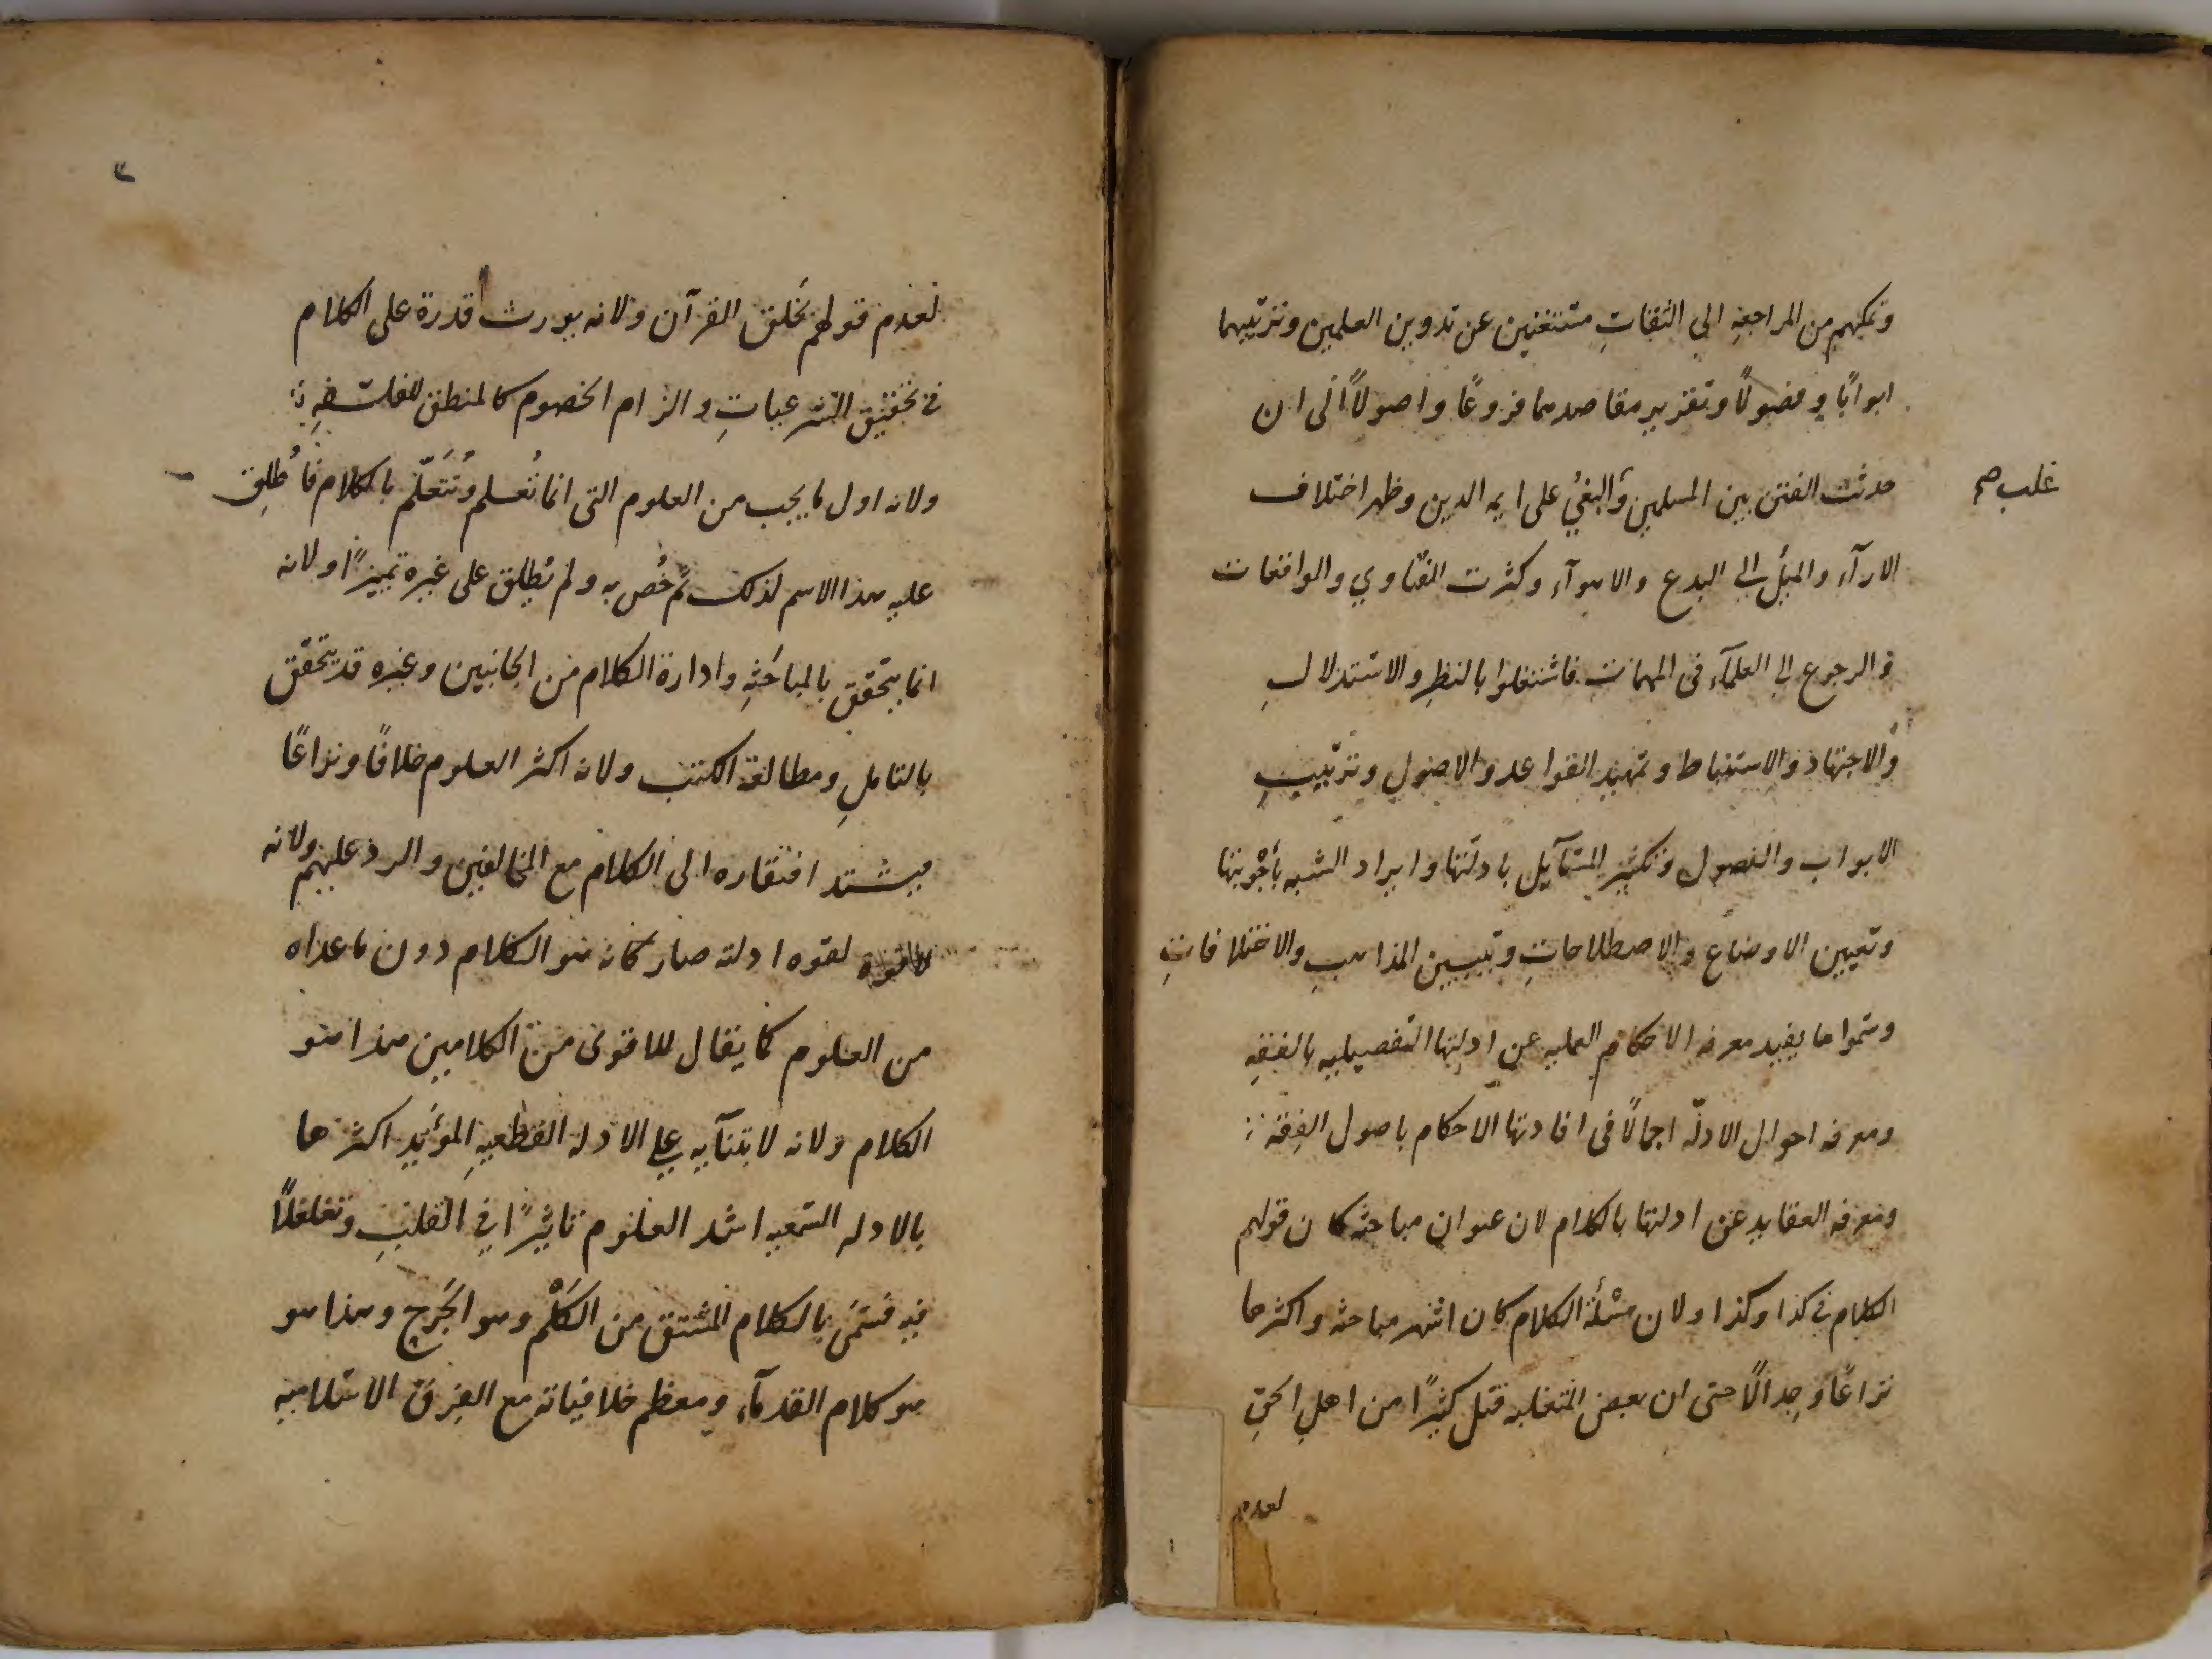 وتمكنهم من المراجعه الى الثقاتِ مستغنين عن تدوين العلمين وترتيبهما
ابوابًا وفصولًا وتقرير مقاصدهما فروعًا واصولًا الى ان
حدثت الفتن بين المسلمين والبغي على ايمه الدين وظهر اختلاف
غلب صح
الارآء والميل الى البدع والاهوآء وكثرت الفتاوي والواقعات
والرجوع الى العلمآء في المهمات فاشتغلوا بالنظرِ والاستدلالِ
والاجتهاد والاستنباط وتمهيد القواعد والاصول وترتيبِ
الابواب والفصول وتكثير المسآيل بادلتها وايراد الشبه بأجْوبتها
وتعيين الاوضاع والاصطلاحاتِ وتبيين المذاهبِ والاختلافاتِ
وسموا ما يفيد معرفه الاحكام العمليه عن ادلتها التفصيليه بالفقهِ
ومعرفه احوال الادلّه اجمالًا في افادتها الاحكام باصول الفِقه
ومعرفه العقايد عن ادلتها بالكلام لان عنوان مباحثه كان قولهم
الكلام في كذا وكذا ولان مسْئلة الكلام كان اشهر مباحثه واكثرها
نزاعًا وجدالًا حتى ان بعض المتغلبه قتل كثيرًا من اهلِ الحقِ
لعدم
٢
لعدم قولهم بخلق القرآن ولانه يورث قدرة على الكلام
في تحقيق الشرعياتِ والزام الخصوم كالمنطق للفلسفهِ
ولانه اول ما يجب من العلوم التى انما تُعلم وتُتَعلّم بالكلام فأُطلِق
عليه هذا الاسم لذلك ثم خُص به ولم يُطلِق على غيره تمييزًا ولانه
انما يتحقق بالمباحَثهِ وادارة الكلام من الجانبين وغيره قد يتحقق
بالتاملِ ومطالعة الكتب ولانه اكثر العلوم خلافًا ونزاعًا
فيشتد افتقاره الى الكلام مع المخالفين والرد عليهم ولانه
لقوه ادلته صار كانه هو الكلام دون ما عداه
من العلوم كما يقال للاقوى من الكلامين هذا هو
الكلام ولانه لابتنآيه على الادله القطعيهِ المؤيد اكثرها
بالادله السمعيه اشد العلوم تاثيرًا في القلبِ وتغلغلًا
فيه فسمّى بالكلام المشتق من الكَلْم وهو الجَرح وهذا هو
هو كلام القدمآء ومعظم خلافياته مع الفِرق الاسلاميه